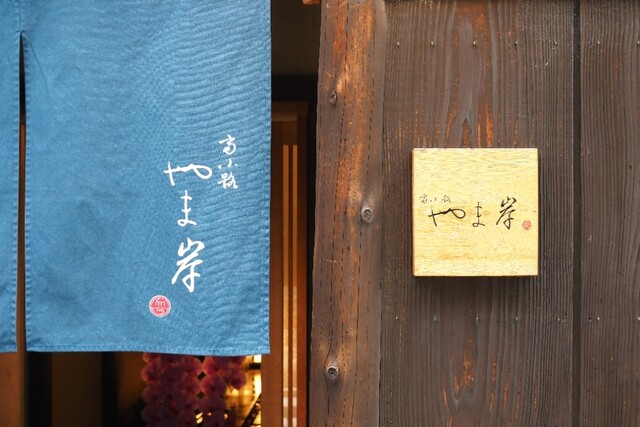 高小路
やま岸
高小路
やま岸